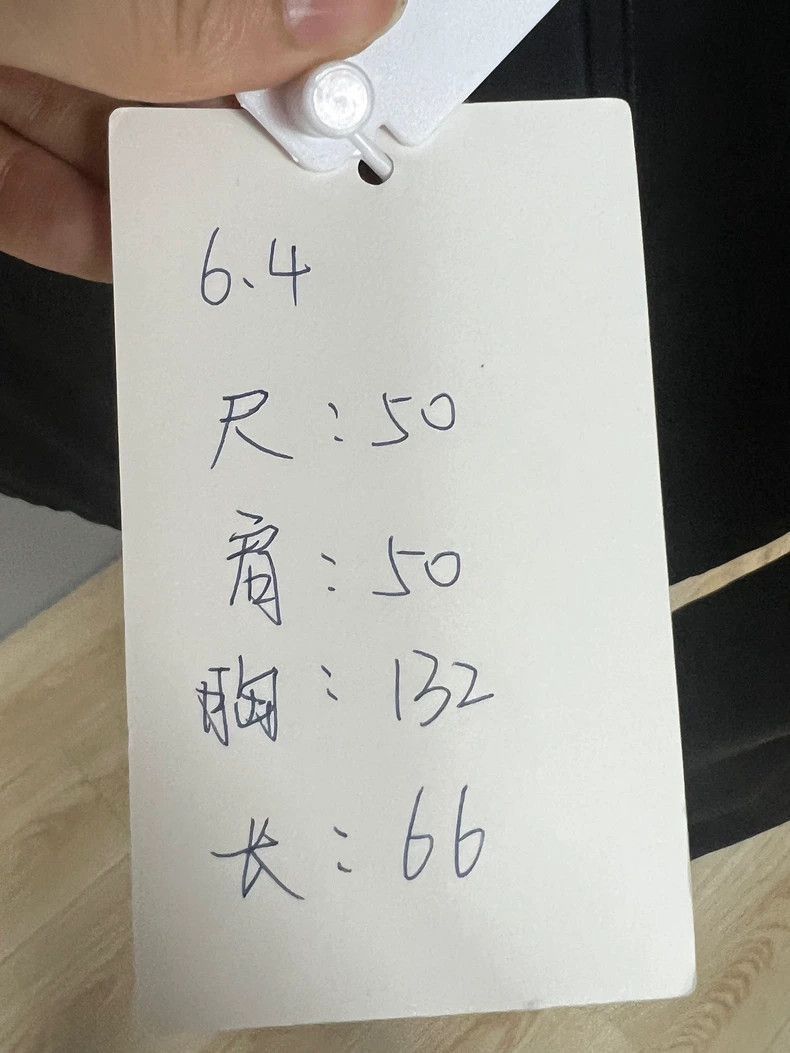 6.4
尺：50
肩：50
胸：132
长：66